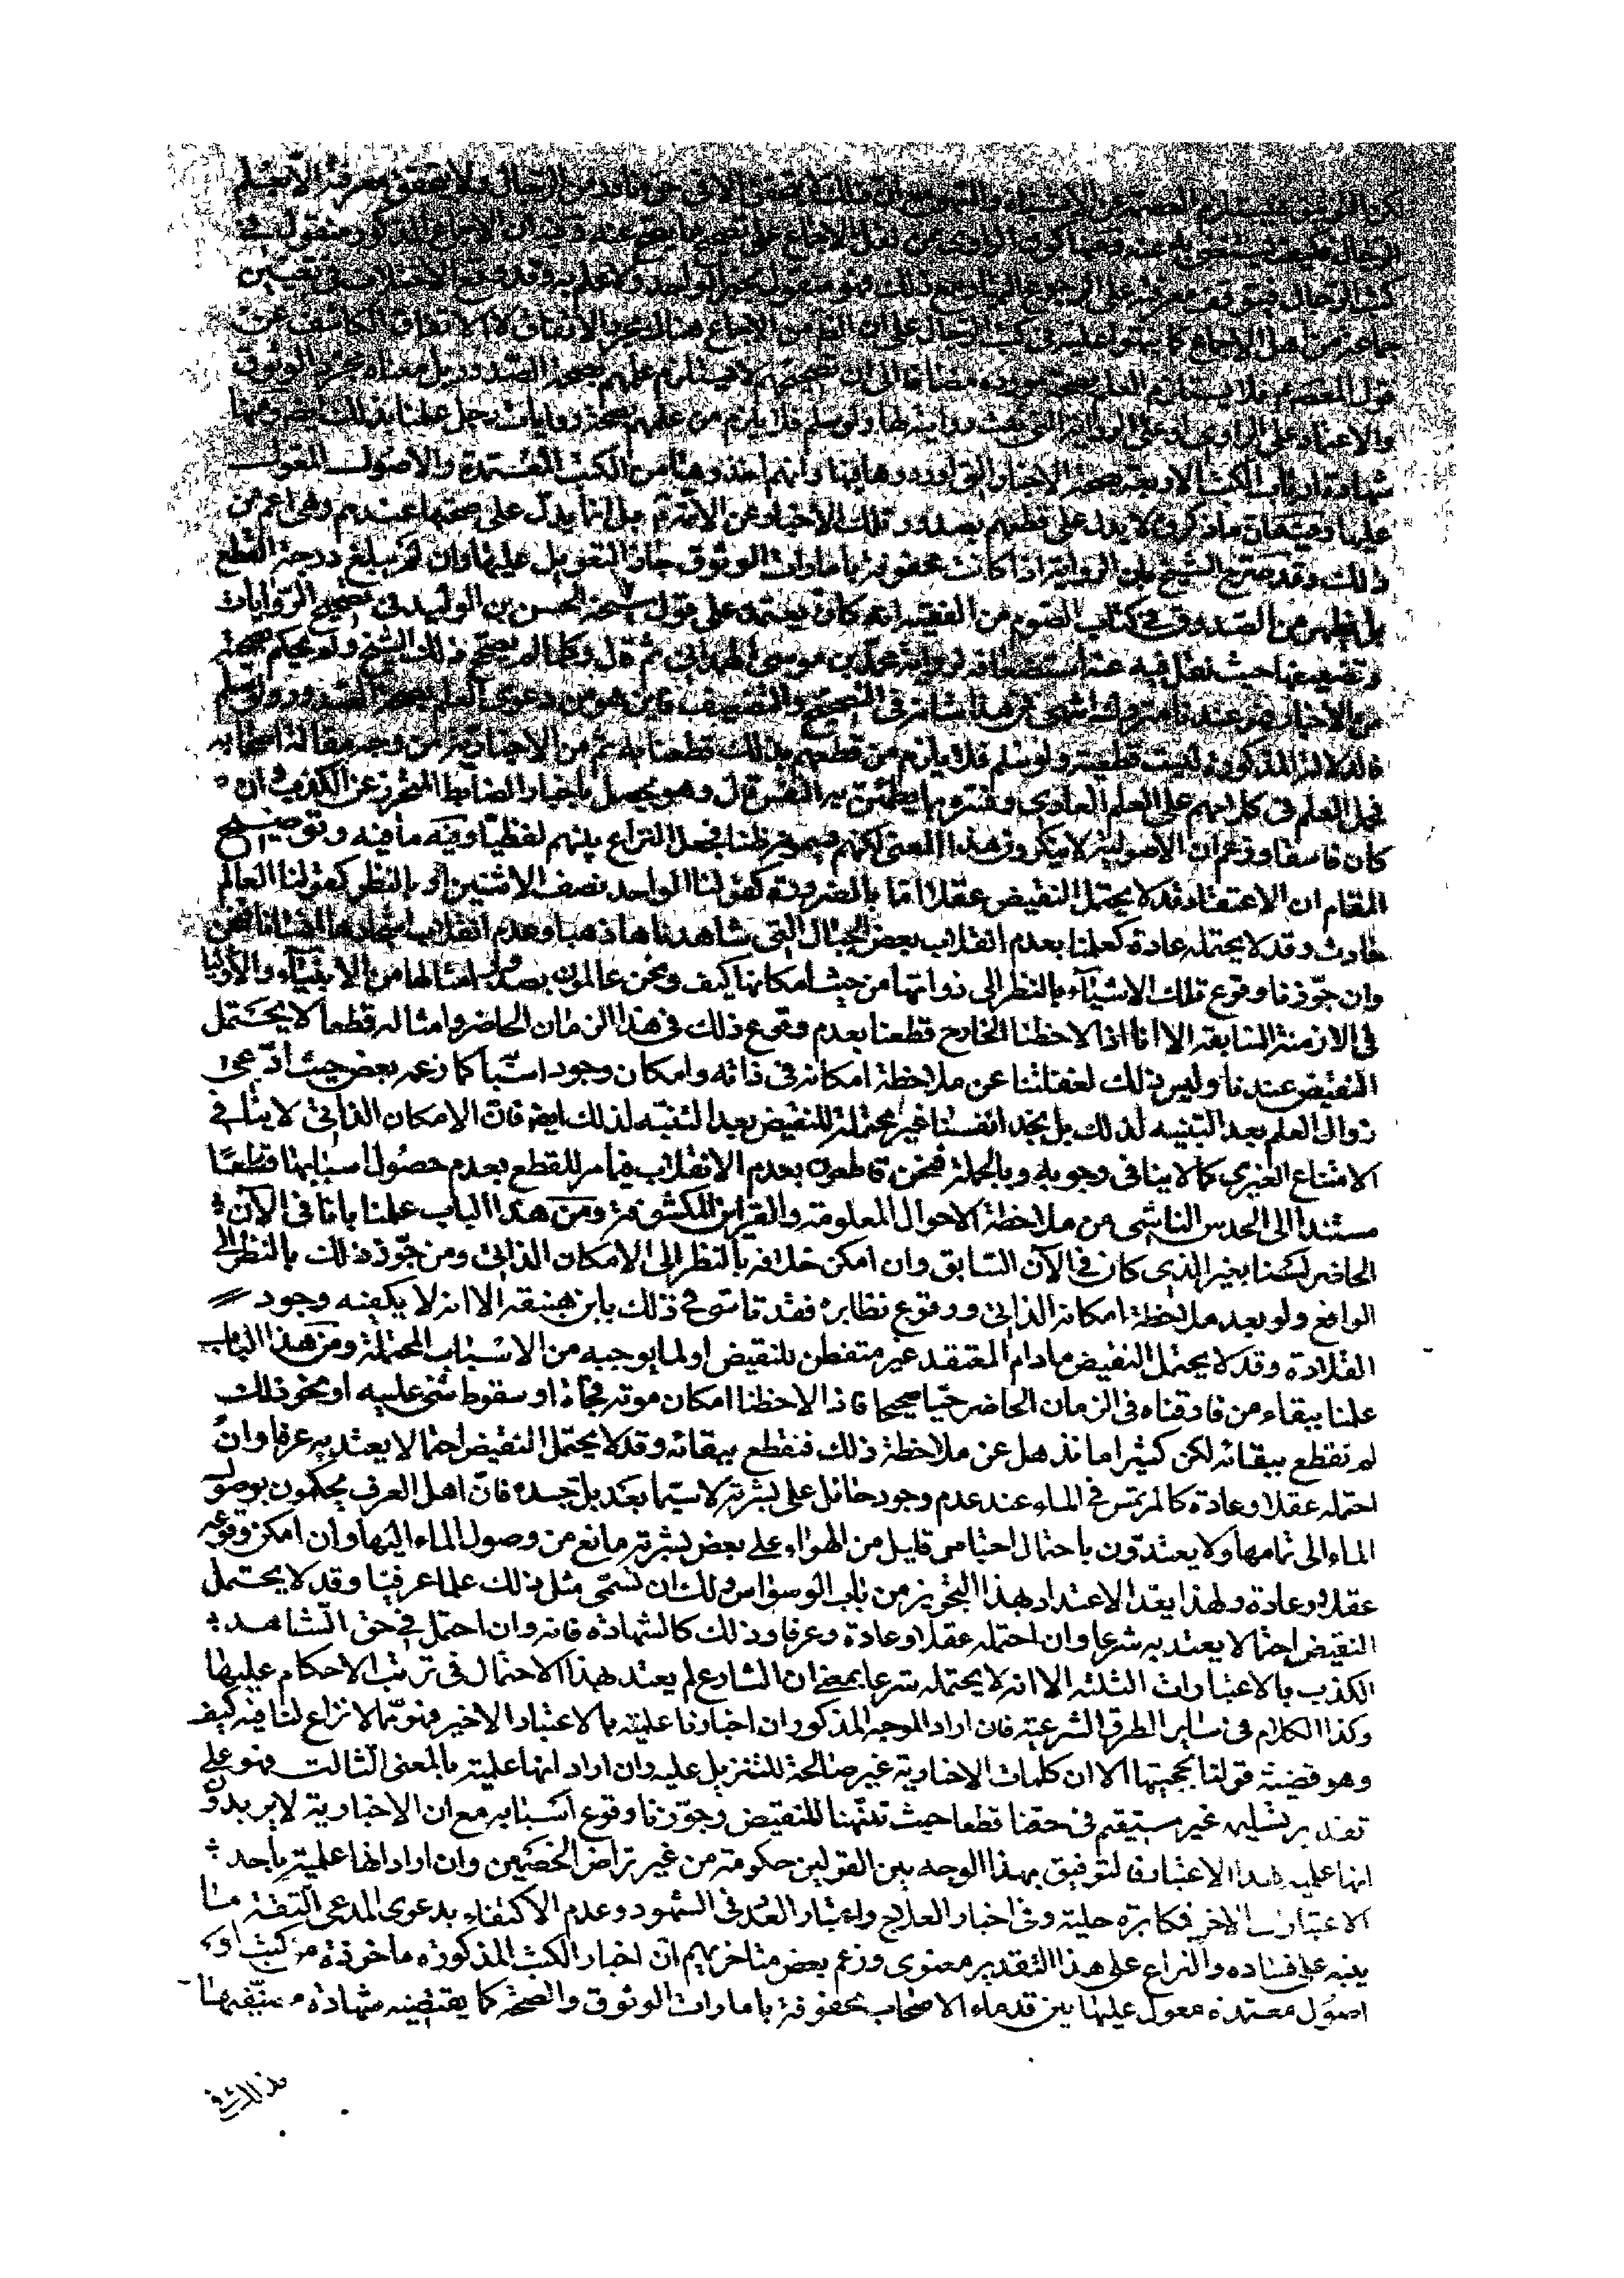 الرجال فكيف يستغنى به عنه ومنها كون الراوى ممن نقل الاجماع على تصحيح ما يصح عنه وفيه ان الاجماع المذكور منقول فى
كتب الرجال فيتوقف معرفته على الرجوع اليها ومع ذلك فهو منقول بخبر الواحد ولا علم به وقد وقع الاختلاف فى تعيين
جماعة من اهل الاجماع كما نبهوا عليه فى كتب الرجال على ان الظ من الاجماع هنا مجرد الاتفاق لا الاتفاق الكاشف عن
قول المعصوم فلا يستلزم العلم بصحة مورده مضافا الى ان تصحيحهم لا يستلزم علمهم بصحة الصدور بل معناه مجرد الوثوق
والاعتماد على الراوى او على الرواية التى ثبت روايته لها ولو سلم فلا يلزم من علمهم بصحة روايات رجل علمنا بذلك ايضا ومنها
شهادة ارباب الكتب الاربعة بصحة الاخبار التى اوردوها فيها وانهم اخذوها من الكتب المعتمدة والاصول المعول
عليها وفيه ان ما ذكروه لا يدل على قطعهم بصدور تلك الاخبار عن الائمة بل انما يدل على صحتها عندهم وهى اعم من
ذلك وقد صرح الشيخ بان الرواية اذا كانت محفوفة بامارات الوثوق جاز التعويل عليها وان لم يبلغ درجة القطع
بل يظهر من الصدوق فى كتاب الصوم من الفقيه انه كان يعتمد على قول شيخه الحسن بن الوليد فى تصحيح الروايات
وتضعيفها حيث نقل فيه عنه استضعافه لرواية محمد بن موسى الهمدانى ثم قال وكلما لم يصححه ذلك الشيخ ولم يحكم بصحته
من الاخبار فهو عندنا متروك انتهى فمن هذا شانه فى التصحيح والتضعيف فاين هو من دعوى العلم بصحة الصدور ولو سلم
فالدلالة المذكورة ليست قطعية ولو سلم فلا يلزم من قطعهم بذلك قطعنا به ثم من الاخبارية من وجه مقالة اصحابه
فحمل العلم فى كلامهم على العلم العادى وفسره بما يطمئن به النفس قال وهو يحصل باخبار الضابط المتحرز عن الكذب وان
كان فاسقا وزعم ان الاصولية لا ينكرون هذا المعنى لكنهم يسمونه ظنا فجعل النزاع بينهم لفظيا وفيه ما فيه وتوضيح
المقام ان الاعتقاد قد لا يحتمل النقيض عقلا اما بالضرورة كقولنا الواحد نصف الاثنين او بالنظر كقولنا العالم
حادث وقد لا يحتمله عادة كعلمنا بعدم انقلاب بعض الجبال التى شاهدناها ذهبا وعدم انقلاب اشجارها انسانا فنحن
وان جوزنا وقوع تلك الاشياء بالنظر الى ذواتها من حيث امكانها كيف ونحن عالمون بصدور امثالها من الانبياء والاوليا
فى الازمنة السابقة الا انا اذا لاحظنا الخارج قطعنا بعدم وقوع ذلك فى هذا الزمان الحاضر وامثاله قطعا لا يحتمل
النقيض عندنا وليس ذلك لغفلتنا عن ملاحظة امكانه فى ذاته وامكان وجود اسبابه كما زعمه بعض حيث ادعى
زوال العلم بعد التنبيه لذلك بل نجد انفسنا غير محتملة للنقيض بعد التنبه لذلك ايضا فان الامكان الذاتى لا ينافى
الامتناع الغيرى كما لا ينافى وجوبه وبالجملة فنحن قاطعون بعدم الانقلاب فيما مر للقطع بعدم حصول اسبابها قطعا
مستندا الى الحدس الناشى من ملاحظة الاحوال المعلومة والقراين المكشوفة ومن هذا الباب علمنا بانا فى الآن
الحاضر لسنا بغير الذى كان فى الآن السابق وان امكن خلافه بالنظر الى الامكان الذاتى ومن جوز ذلك بالنظر الى
الواقع ولو بعد ملاحظة امكانه الذاتى ووقوع نظايره فقد تاسى فى ذلك بابن هبنقة الا انه لا يكفيه وجود
القلادة وقد لا يحتمل النقيض ما دام المعتقد غير متفطن للنقيض او لما يوجبه من الاسباب المحتملة ومن هذا الباب
علمنا ببقاء من فارقناه فى الزمان الحاضر حيا صحيحا فاذا لاحظنا امكان موته فجأة او سقوط شئ عليه او نحو ذلك
لم نقطع ببقائه لكن كثيرا ما نذهل عن ملاحظة ذلك فنقطع ببقائه وقد لا يحتمل النقيض احتمالا يعتد به عرفا وان
احتمله عقلا وعادة كالمرتمس فى الماء عند عدم وجود حائل على بشرته لا سيما بعد بل جسده فان اهل العرف يحكمون بوصول
الماء الى تمامها ولا يعتدون باحتمال احتباس قليل من الهواء على بعض بشرته مانع من وصول الماء اليها وان امكن وقوعه
عقلا وعادة ولهذا يعد الاعتداد بهذا التجويز من باب الوسواس ولك ان تسمى مثل ذلك علما عرفيا وقد لا يحتمل
النقيض احتمالا يعتد به شرعا وان احتمله عقلا وعادة وعرفا وذلك كالشهادة فانه وان احتمل فى حق الشاهد
الكذب بالاعتبارات الثلثة الا انه لا يحتمله شرعا بمعنى ان الشارع لم يعتد بهذا الاحتمال فى ترتب الاحكام عليها
وكذا الكلام فى ساير الطرق الشرعية فان اراد الموجه المذكور ان اخبارنا علمية بالاعتبار الاخير فهو مما لا نزاع لنا فيه كيف
وهو قضية قولنا بحجيتها الا ان كلمات الاخبارية غير صالحة للتنزيل عليه وان اراد انها علمية بالمعنى الثالث فهو على
تقدير تسليمه غير مستقيم فى حقنا قطعا حيث تنبهنا للنقيض وجوزنا وقوع اسبابه مع ان الاخبارية لا يريدون
انها علمية بهذا الاعتبار فالتوفيق بهذا الوجه بين القولين حكومة من غير تراض الخصمين وان اراد انها علمية باحد
الاعتبارات الاخر فمكابرة جلية وفى اخبار العلاج واعتبار العدد فى الشهود وعدم الاكتفاء بدعوى المدعى الثقة ما
ينبه على فساده والنزاع على هذا التقدير معنوى وزعم بعض متاخريهم ان اخبار الكتب المذكورة ماخوذة من كتب او
اصول معتمدة معول عليها بين قدماء الاصحاب محفوفة بامارات الوثوق والصحة كما يقتضيه شهادة مصنفيها